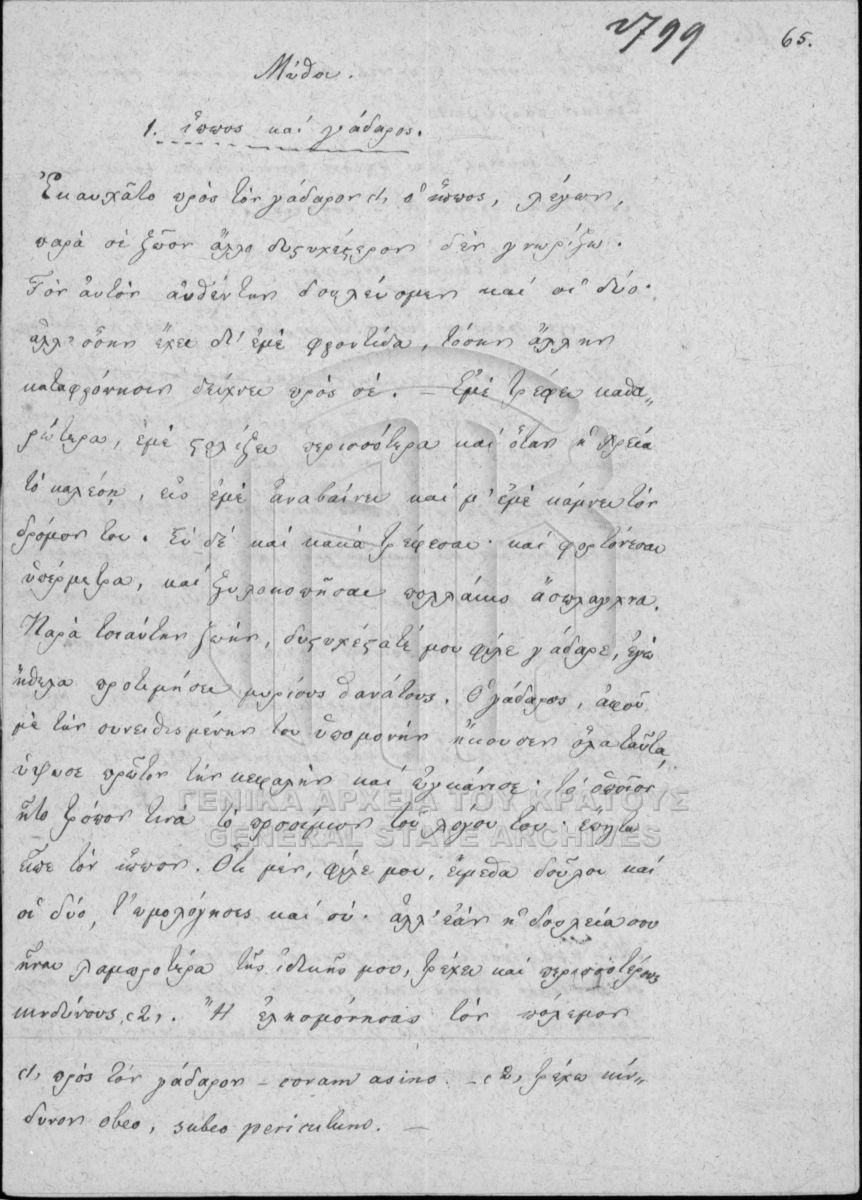 799
65.
Μῦθοι.
1. ἵππος καὶ γάδαρος.
Ἐκαυχᾶτο πρὸς τὸν γάδαρον (1) ὁ ἵππος, λέγων,
παρὰ σὲ ζῶον ἄλλο δυςυχέςερον δὲν γνωρίζω.
Τὸν ἀυτὸν ἀυθέντην δουλεύομεν καὶ οἱ δύο·
ἀλλ' ὅσην ἔχει δι' ἐμὲ φροντίδα, τόσην ἄλλην
καταφρόνησιν δείχνει πρὸς σέ. — Ἐμὲ τρέφει καθα„
ρώτερα, ἐμὲ ςολίζει περισσότερα καὶ ὅταν ἡ χρεία
τὸ καλέσῃ, εἰς ἐμὲ ἀναβαίνει καὶ μ' ἐμὲ κάμνει τὸν
δρόμον του. Σὺ δὲ καὶ κακὰ τρέφεσαι· καὶ φορτόνεσαι
ὑπέρμετρα, καὶ ξυλοκοπῆσαι πολλάκις ἄσπλαγχνα.
Παρὰ τοιαύτην ζωὴν, δυςυχέςατέ μου φίλε γάδαρε, ἐγὼ
ἤθελα προτιμήσει μυρίους θανάτους. Ὁ γάδαρος, ἀφοῦ
μὲ τὴν συνειθισμένην του ὑπομονὴν ἤκουσεν ὅλα ταῦτα
ὕψωσε πρῶτον τὴν κεφαλὴν καὶ ἐγκάνισε· τὸ ὁποῖον
ἦτο τρόπον τινὰ τὸ προοίμιον τοῦ λόγου του· ἔπειτα
εἶπε τὸν ἵππον. Ὅτι μὲν, φίλε μου, εἴμεθα δοῦλοι καὶ
οἱ δύο, τ' ὡμολόγησες καὶ σύ· ἀλλ' ἐὰν ἡ δουλεία σου
ἦναι λαμπροτέρα τῆς ἰδικῆς μου, τρέχει καὶ περισσοτέρους
κινδύνους (2). Ἢ ἐλησμόνησας τὸν πόλεμον
(1) πρὸς τὸν γάδαρον — coram asino. — (2) τρέχω κίν„
δυνον obeo, subeo periculum. —
ΓΕΝΙΚΑ ΑΡΧΕΙΑ ΤΟΥ ΚΡΑΤΟΥΣ
GENERAL STATE ARCHIVES